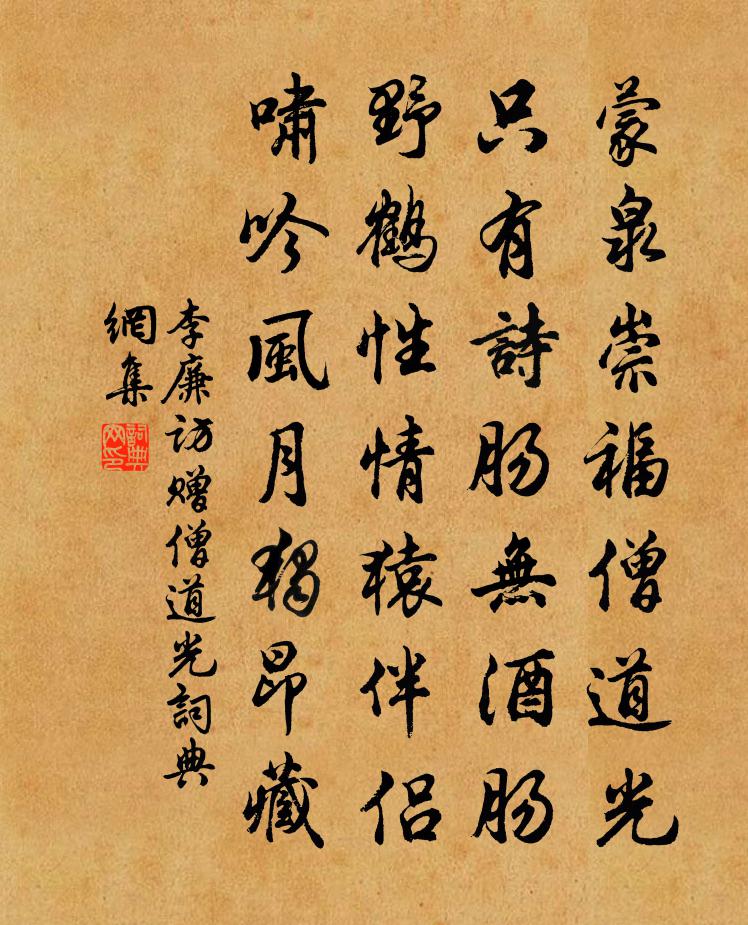 蒙泉崇福僧道光
只有詩肠無酒肠
野鶴性情猿伴侣
嘯吟風月独昂藏
李廉访赠僧道光詞典
網集
詞典
网印